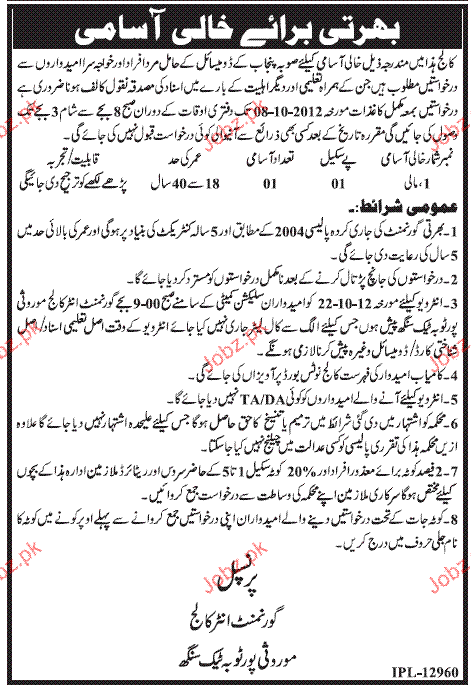 بھرتی برائے خالی آسامی
کالج ہذا میں مندرجہ ذیل خالی آسامی کیلئے صوبہ پنجاب کے ڈومیسائل کے حامل مرد افراد اور خواجہ سرا امیدواروں سے
درخواستیں مطلوب ہیں جن کے ہمراہ تعلیمی اور دیگر اہلیت کے بارے میں اسناد کی مصدقہ نقول کا لف ہونا ضروری ہے
درخواستیں بمعہ مکمل کاغذات مورخہ 2012-10-08 تک دفتری اوقات کے دوران صبح 8 بجے سے شام 3 بجے تک
وصول کی جائیں گی مقررہ تاریخ کے بعد کسی بھی ذرائع سے آنیوالی کوئی درخواست قبول نہیں کی جائے گی۔
نمبر شمار خالی آسامی پے سکیل تعداد آسامی عمر کی حد قابلیت/تجربہ
1۔ مالی 01 01 18 سے 40 سال پڑھے لکھے کو ترجیح دی جائیگی
عمومی شرائط:۔
1۔ بھرتی گورنمنٹ کی جاری کردہ پالیسی 2004 کے مطابق اور 5 سالہ کنٹریکٹ کی بنیاد پر ہوگی اور عمر کی بالائی حد میں
5 سال کی رعایت دی جائے گی۔
2۔ درخواستوں کی جانچ پڑتال کرنے کے بعد نامکمل درخواستوں کو مسترد کر دیا جائے گا۔
3۔ انٹرویو کیلئے مورخہ 12-10-22 کو امیدواران سلیکشن کمیٹی کے سامنے صبح 00-9 بجے گورنمنٹ انٹر کالج موروثی
پور ٹوبہ ٹیک سنگھ پیش ہوں جس کیلئے الگ سے کال لیٹر جاری نہیں کیا جائے گا انٹرویو کے وقت اصل تعلیمی اسناد/اصل
شناختی کارڈ/ڈومیسائل وغیرہ پیش کرنا لازمی ہونگے۔
4۔ کامیاب امیدوار کی فہرست کالج نوٹس بورڈ پر آویزاں کی جائے گی۔
5۔ انٹرویو کیلئے آنے والے امیدواروں کو کوئی TA/DA نہیں دیا جائے گا۔
6۔ محکمہ کو اشتہار میں دی گئی شرائط میں ترمیم یا تنسیخ کا حق حاصل ہوگا جس کیلئے علیحدہ اشتہار نہیں دیا جائے گا علاوہ ازیں
محکمہ ہذا کی تقرری پالیسی کو کسی عدالت میں چیلنج نہیں کیا جا سکتا۔
7۔ 2 فیصد کوٹہ برائے معذور افراد اور 20% کوٹہ سکیل 1 تا 5 کے حاضر سروس اور ریٹائرڈ ملازمین ادارہ ہذا کے بچوں
کیلئے مختص ہوگا سرکاری ملازمین اپنے محکمہ کی وساطت سے درخواست جمع کروائیں۔
8۔ کوٹہ جات کے تحت درخواستیں دینے والے امیدواران اپنی درخواستیں جمع کروانے سے پہلے اوپر کونے میں کوٹہ کا
نام جلی حروف میں درج کریں۔
پرنسپل
گورنمنٹ انٹر کالج
موروثی پور ٹوبہ ٹیک سنگھ
IPL-12960
Jobz.pk